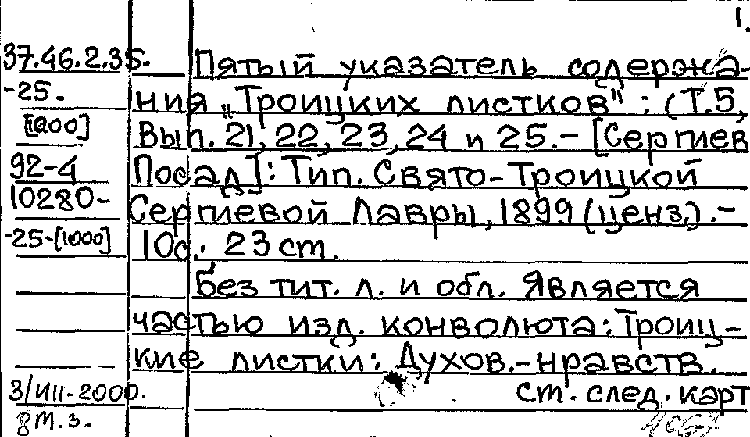 1.
37.46.2.35.
-25.
[1000]
92-4
10280-
-25-[1000]
Пятый указатель содержа-
ния „Троицких листков" : (Т.5,
Вып. 21, 22, 23, 24 и 25. – [Сергиев
Посад]: Тип. Свято-Троицкой
Сергиевой Лавры, 1899 (ценз.). –
10с.. 23 ст.
Без тит. л. и обл. Является
частью изд. конволюта: Троиц-
кие листки: Духов.-нравств.
ст. след. карт
3/VIII-2000.
8М.З.